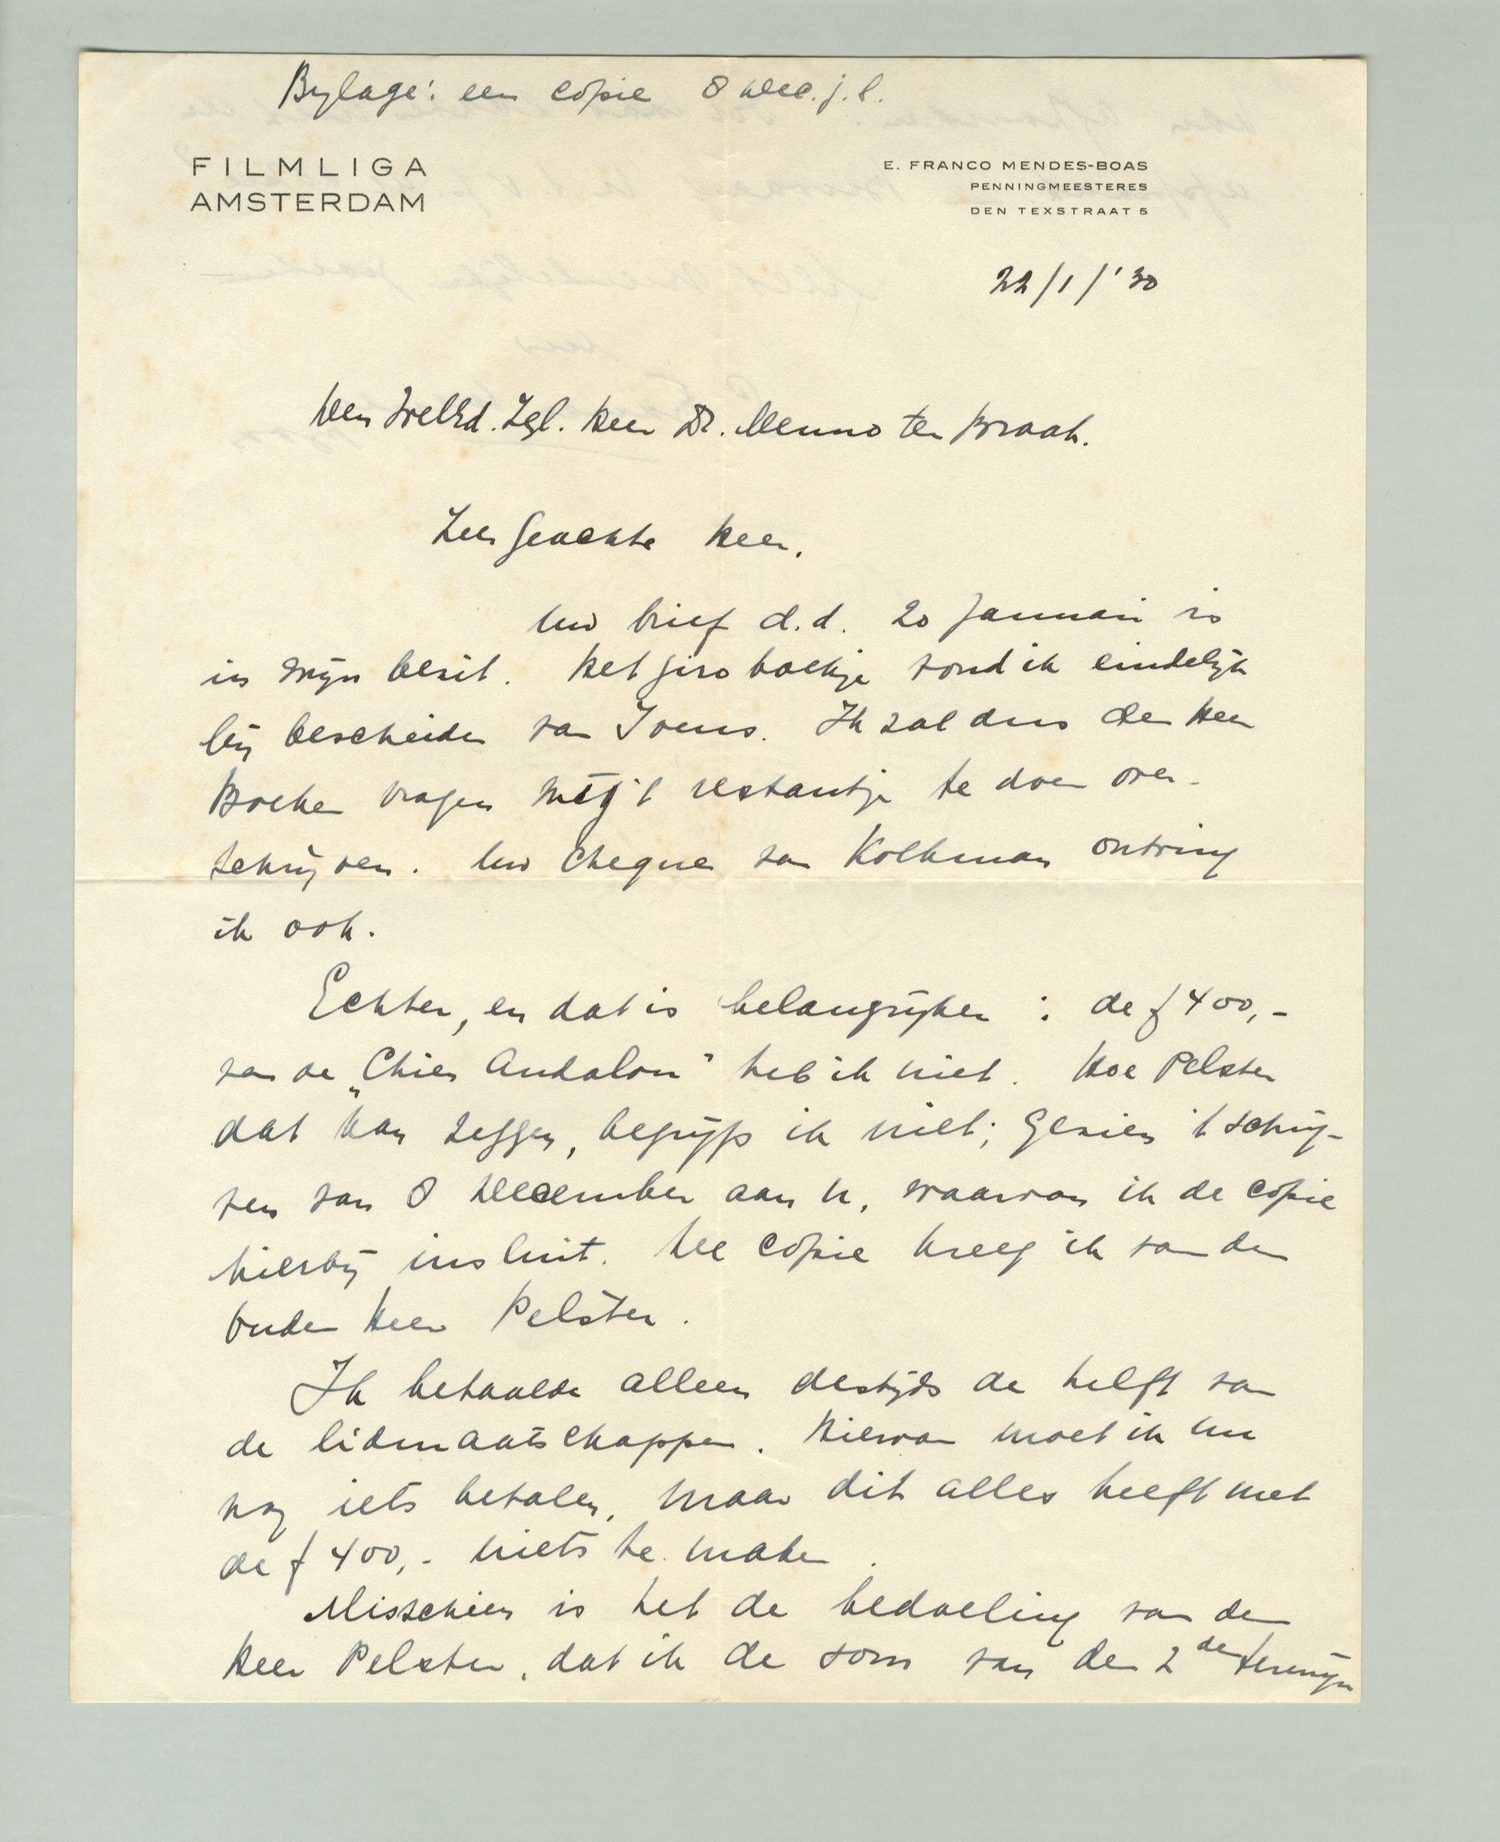 Bylage: een copie 8 Dec. j.l.
FILMLIGA
AMSTERDAM
E. FRANCO MENDES-BOAS
PENNINGMEESTERES
DEN TEXSTRAAT 5
22/1/'30
Den WelEd. Zgl. Heer Dr. Menno ter Braak.
Zeer Geachte Heer,
Uw brief d.d. 20 Januari is
in mijn bezit. Het giro boekje vond ik eindelijk
bij bescheiden van Ivens. Ik zal dus den Heer
Boeken vragen mij 't restantje te doen over-
schrijven. Uw cheque van Kolkman ontving
ik ook.
Echter, en dat is belangrijker: de f 400,-
van de „Chien Andalou" heb ik niet. Hoe Pelster
dat kan zeggen, begrijp ik niet; gezien 't schrij-
ven van 8 December aan U, waarvan ik de copie
hierbij insluit. De copie kreeg ik van den
ouden Heer Pelster.
Ik betaalde alleen destijds de helft van
de lidmaatschappen. Hiervan moet ik nu
nog iets betalen, maar dit alles heeft met
de f 400,- niets te maken.
Misschien is het de bedoeling van den
Heer Pelster, dat ik de som van den 2den termijn